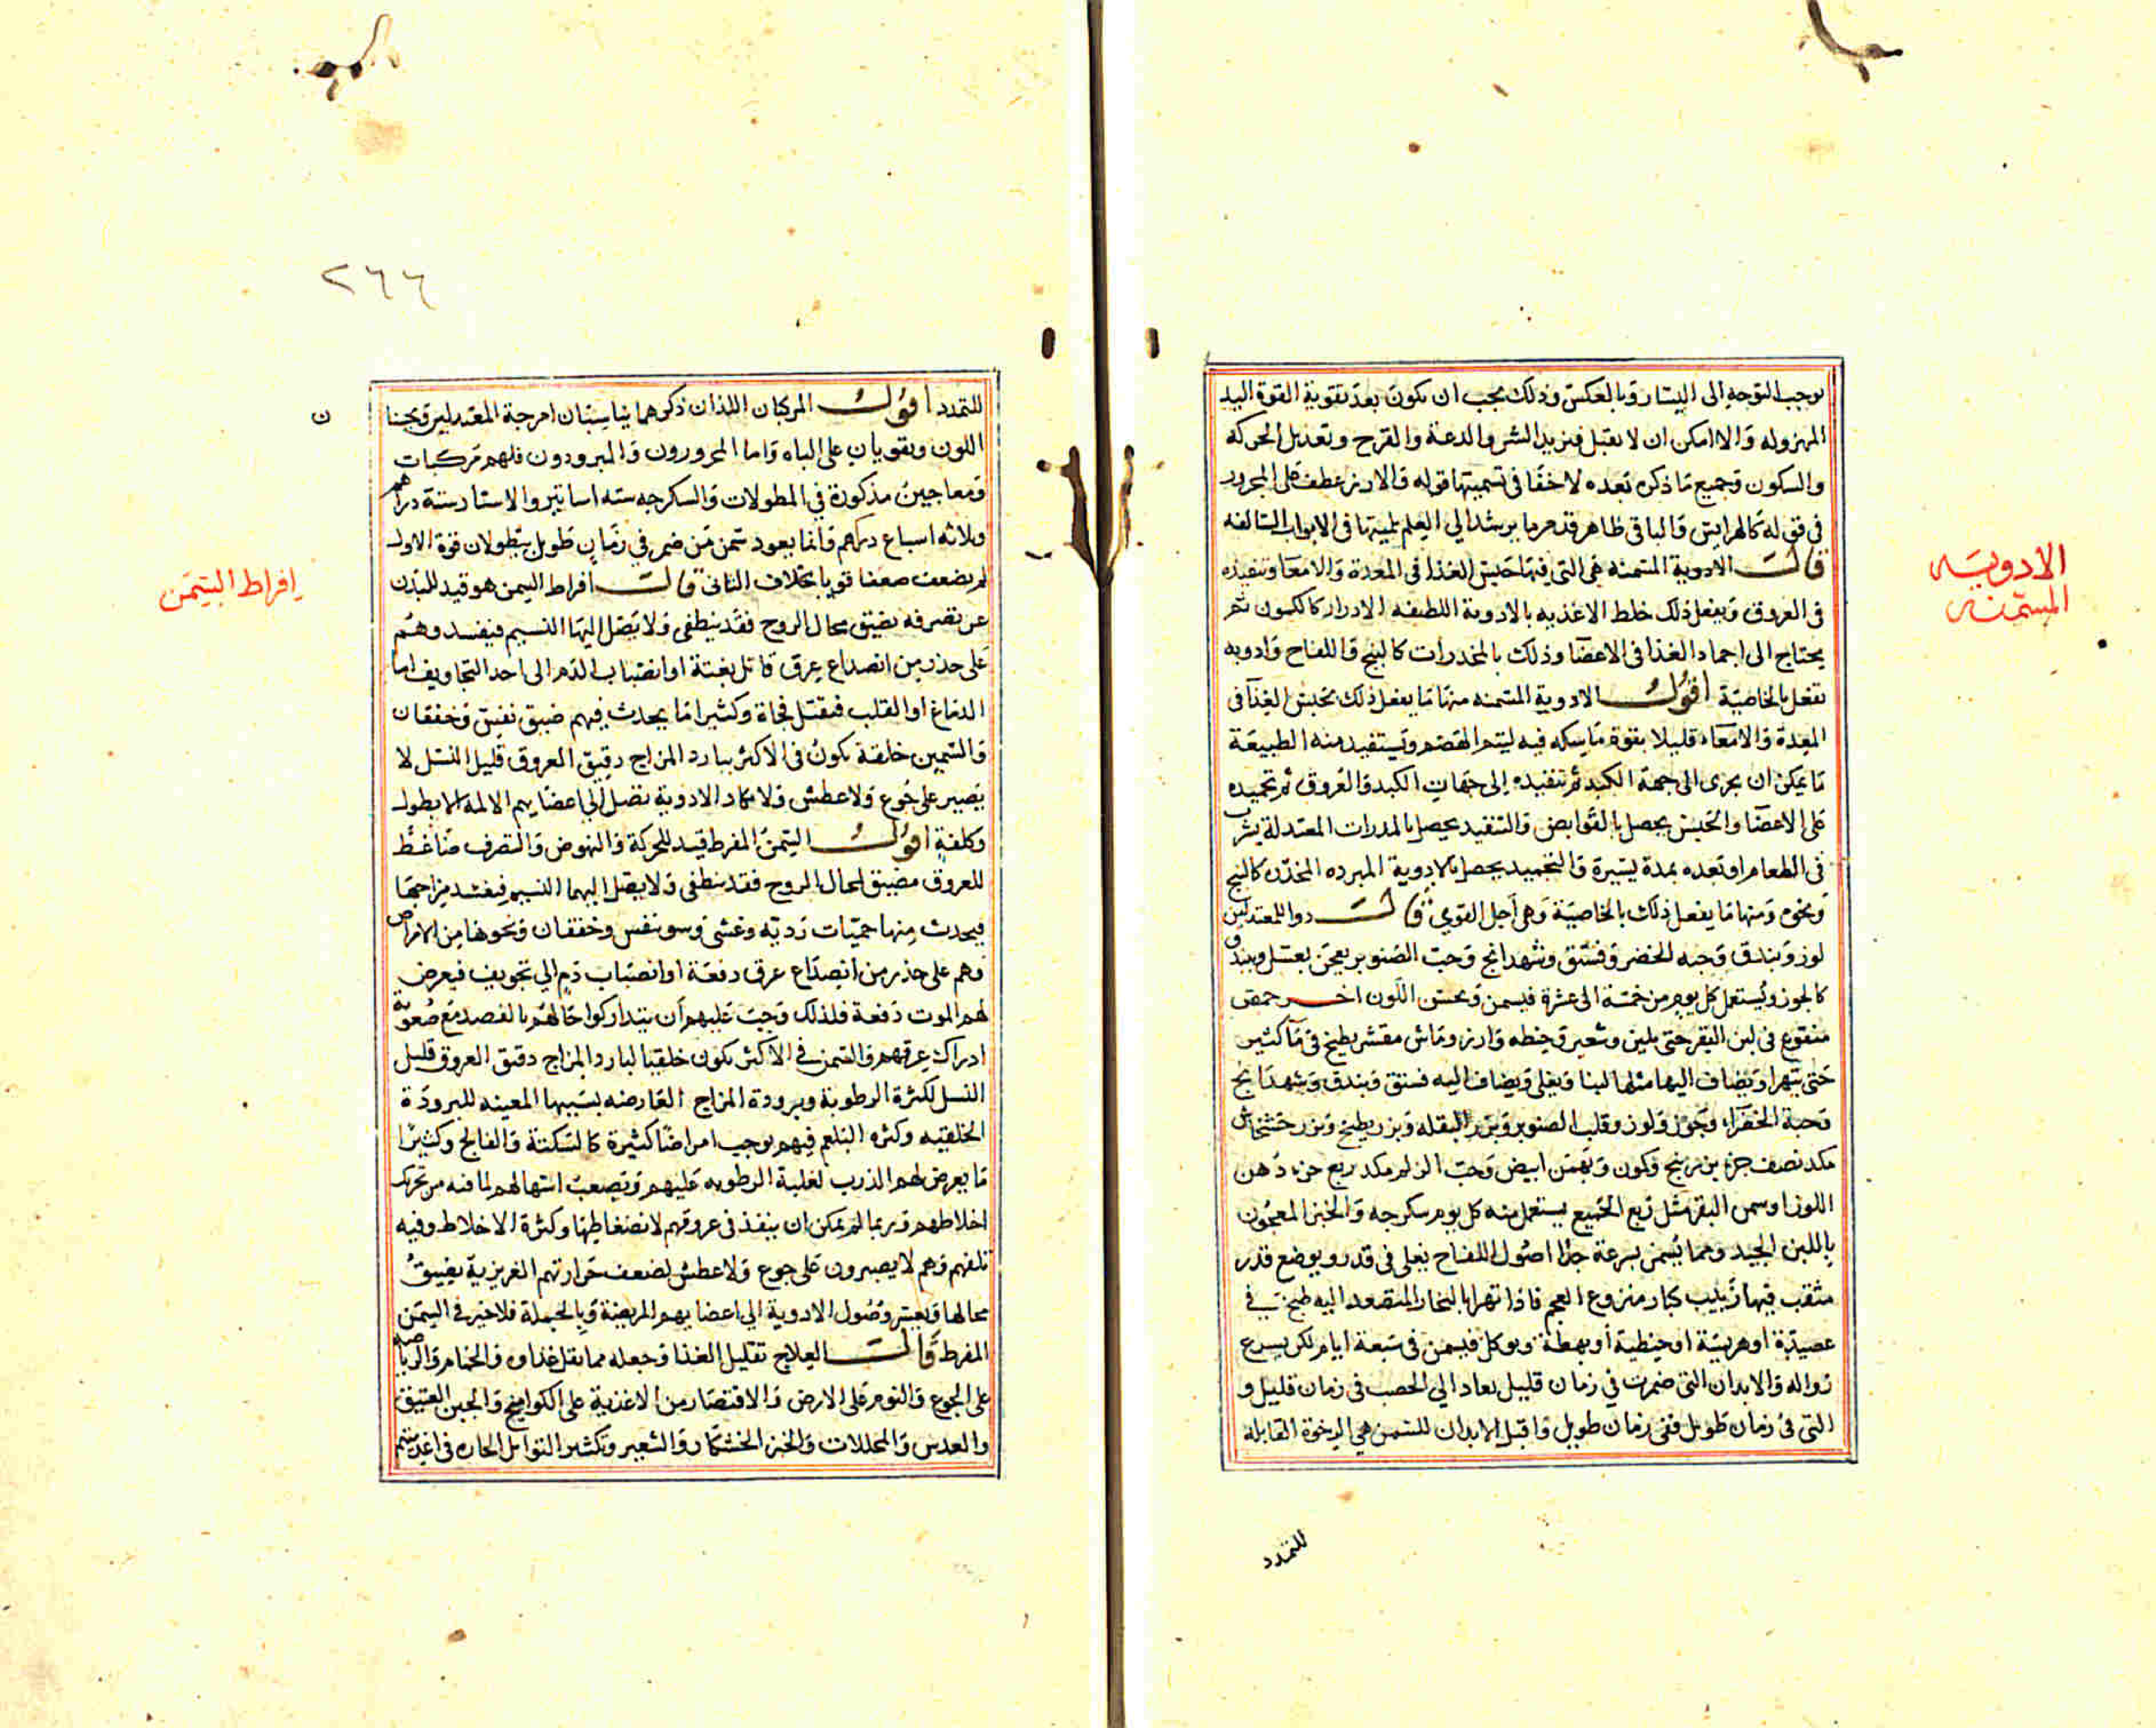 يوجب التوجه الى اليسار وبالعكس وذلك يجب ان يكون بعد تقوية القوة اليد
المهزوله والا امكن ان لا يقبل فيزيد الشر والدعة والفرح وتعديل الحركه
والسكون وجميع ما ذكره بعده لا خفا في تسميتها قوله والارز عطف على المجرور
في قوله كالهرايس والباقي ظاهر قد مر ما يرشد الي العلم بلميتها في الابواب السالفه
قالت الادوية المسمنه هي التي فيها حبس الغذا في المعدة والامعا وتنفيذه
في العروق ويفعل ذلك خلط الاغذيه بالادوية اللطيفه الادرار كالكمون ثم
يحتاج الى اجماد الغذا في الاعضا وذلك بالمخدرات كالبنج واللفاح وادويه
تفعل بالخاصية اقول الادوية المسمنه منها ما يفعل ذلك بحبس الغذا في
المعدة والامعاء قليلا بقوة ماسكه فيه ليتم الهضم ويستفيد منه الطبيعة
ما يمكن ان يجرى الى جهة الكبد ثم تنفيذه إلى جهات الكبد والعروق ثم تجميده
على الاعضا والحبس يحصل بالقوابض والتنفيذ يحصل بالمدرات المعتدلة يشرب
في الطعام او بعده بمدة يسيرة والتجميد يحصل بالادوية المبرده المخدره كالبنج
ونحوه ومنها ما يفعل ذلك بالخاصية وهي اجل القوي قالت دوا للمعتدلين
لوز وبندق وحبه الخضر وفستق وشهدانج وحب الصنوبر يعجن بعسل ويبندق
كالجوز ويستعمل كل يوم من خمسة الى عشرة فيسمن ويحسن اللون اخر حمص
منقوع في لبن البقر حتى يلين وشعير وحنطه وارز وماش مقشر يطبخ في ما كثير
حتى يتهرا ويضاف اليها مثلها لبنا ويغلى ويضاف اليه فستق وبندق وشهدانج
وحبة الخضراء وجوز ولوز وقلب الصنوبر وبزر البقله وبزر بطيخ وبزر خشخاش
مكد نصف جزء بزر بنج وكمون وبهمن ابيض وحب الزلم مكد ربع جزء دهن
اللوز او سمن البقر مثل ربع الجميع يستعمل منه كل يوم سكرجه والخبز المعجون
باللبن الجيد ومما يسمن بسرعة جدا اصول اللفاح يغلى في قدر ويوضع قدر
مثقب فيها زبيب كبار منزوع العجم فاذا تهرا بالبخار المتصعد اليه طبخ في
عصيدة او هريسة او حنطية أو بهطة ويوكل فيسمن في سبعة ايام لكن يسرع
زواله والابدان التي ضمرت في زمان قليل يعاد الي الخصب في زمان قليل و
التي في زمان طويل ففي زمان طويل واقبل الابدان للتسمن هي الرخوة القابلة
للتمدد
الادويه
المسمنه
٢٦٦
للتمدد اقول المركبان اللذان ذكرهما يناسبان امرجة المعتدلين ويحسنا
ن
اللون ويقويان على الباه واما المحرورون والمبرودون فلهم مركبات
ومعاجين مذكورة في المطولات والسكرجه سته اساتير والاستار ستة دراهم
وثلاثه اسباع درهم وانما يعود سمن من ضمر في زمان طويل بطولان قوة الاول
لم يضعف ضعفا قويا بخلاف الثاني قالت افراط السمن هو قيد للبدن
عن تصرفه يضيق مجال الروح فقد ينطفي ولا يصل اليها النسيم فيفسد وهم
على حذر من انصداع عرق قاتل بغتة او انصباب الدم الى احد التجاويف اما
الدماغ او القلب فيقتل فجاة وكثيرا ما يحدث فيهم ضيق نفس وخفقان
والسمين خلقة يكون في الاكثر بارد المزاج رقيق العروق قليل النسل لا
يصبر على جوع ولا عطش ولا يكاد الادوية تصل إلى اعضايهم الالمة الا بطول
وكلفة اقول السمن المفرط قيد للحركة والنهوض والتصرف ضاغط
للعروق مضيق لمجال الروح فقد ينطفي ولا يصل اليها النسيم فيفسد مزاجها
فيحدث منها حميات رديه وغشي وسو نفس وخفقان ونحوها من الامراض
وهم على حذر من انصداع عرق دفعة او انصباب دم الي تجويف فيعرض
لهم الموت دفعة فلذلك وجب عليهم أن يتداركوا حالهم بالفصد مع صعوبة
ادراك عرقهم والسمن في الاكثر يكون خلقيا لبارد المزاج دقيق العروق قليل
النسل لكثرة الرطوبة وبرودة المزاج العارضه بسببها المعينه للبرودة
الخلقيه وكثره البلغم فيهم يوجب امراضا كثيرة كالسكتة والفالج وكثيرا
ما يعرض لهم الذرب لغلبة الرطوبه عليهم ويصعب اسهالهم لما فيه من تحرك
اخلاطهم وربما لم يمكن ان ينفذ في عروقهم لانضغاطها وكثرة الاخلاط وفيه
تلفهم وهم لا يصبرون على جوع ولا عطش لضعف حرارتهم الغريزية بضيق
مجالها وبعسر وصول الادوية الي اعضايهم المريضة وبالجملة فلا خير في السمن
المفرط قالت العلاج تقليل الغذا وجعله مما يقل غذاوه والحمام والرياضه
على الجوع والنوم على الارض والاقتصار من الاغذية على الكوامخ والجبن العتيق
والعدس والمخللات والخبز الخشكار والشعير وتكثير التوابل الحاره في اغذيتهم
إفراط السمن